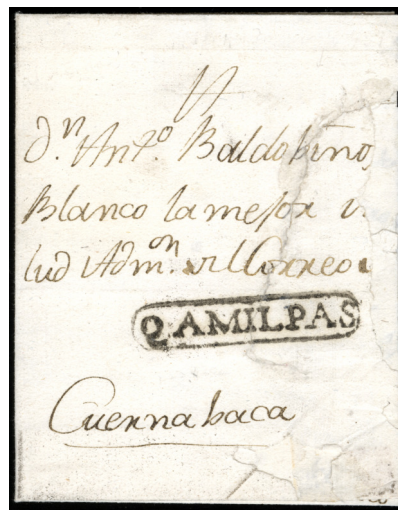 Dn. Anto. Baldobino
Blanco la mejor
lud Admon. del Correo
Q.AMILPAS
Cuernabaca